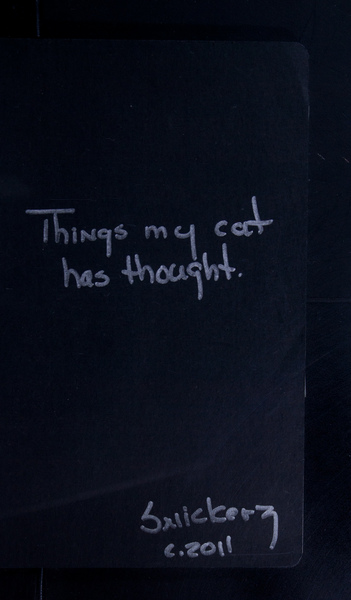 Things my cat
has thought.
Snickerz
c.2011